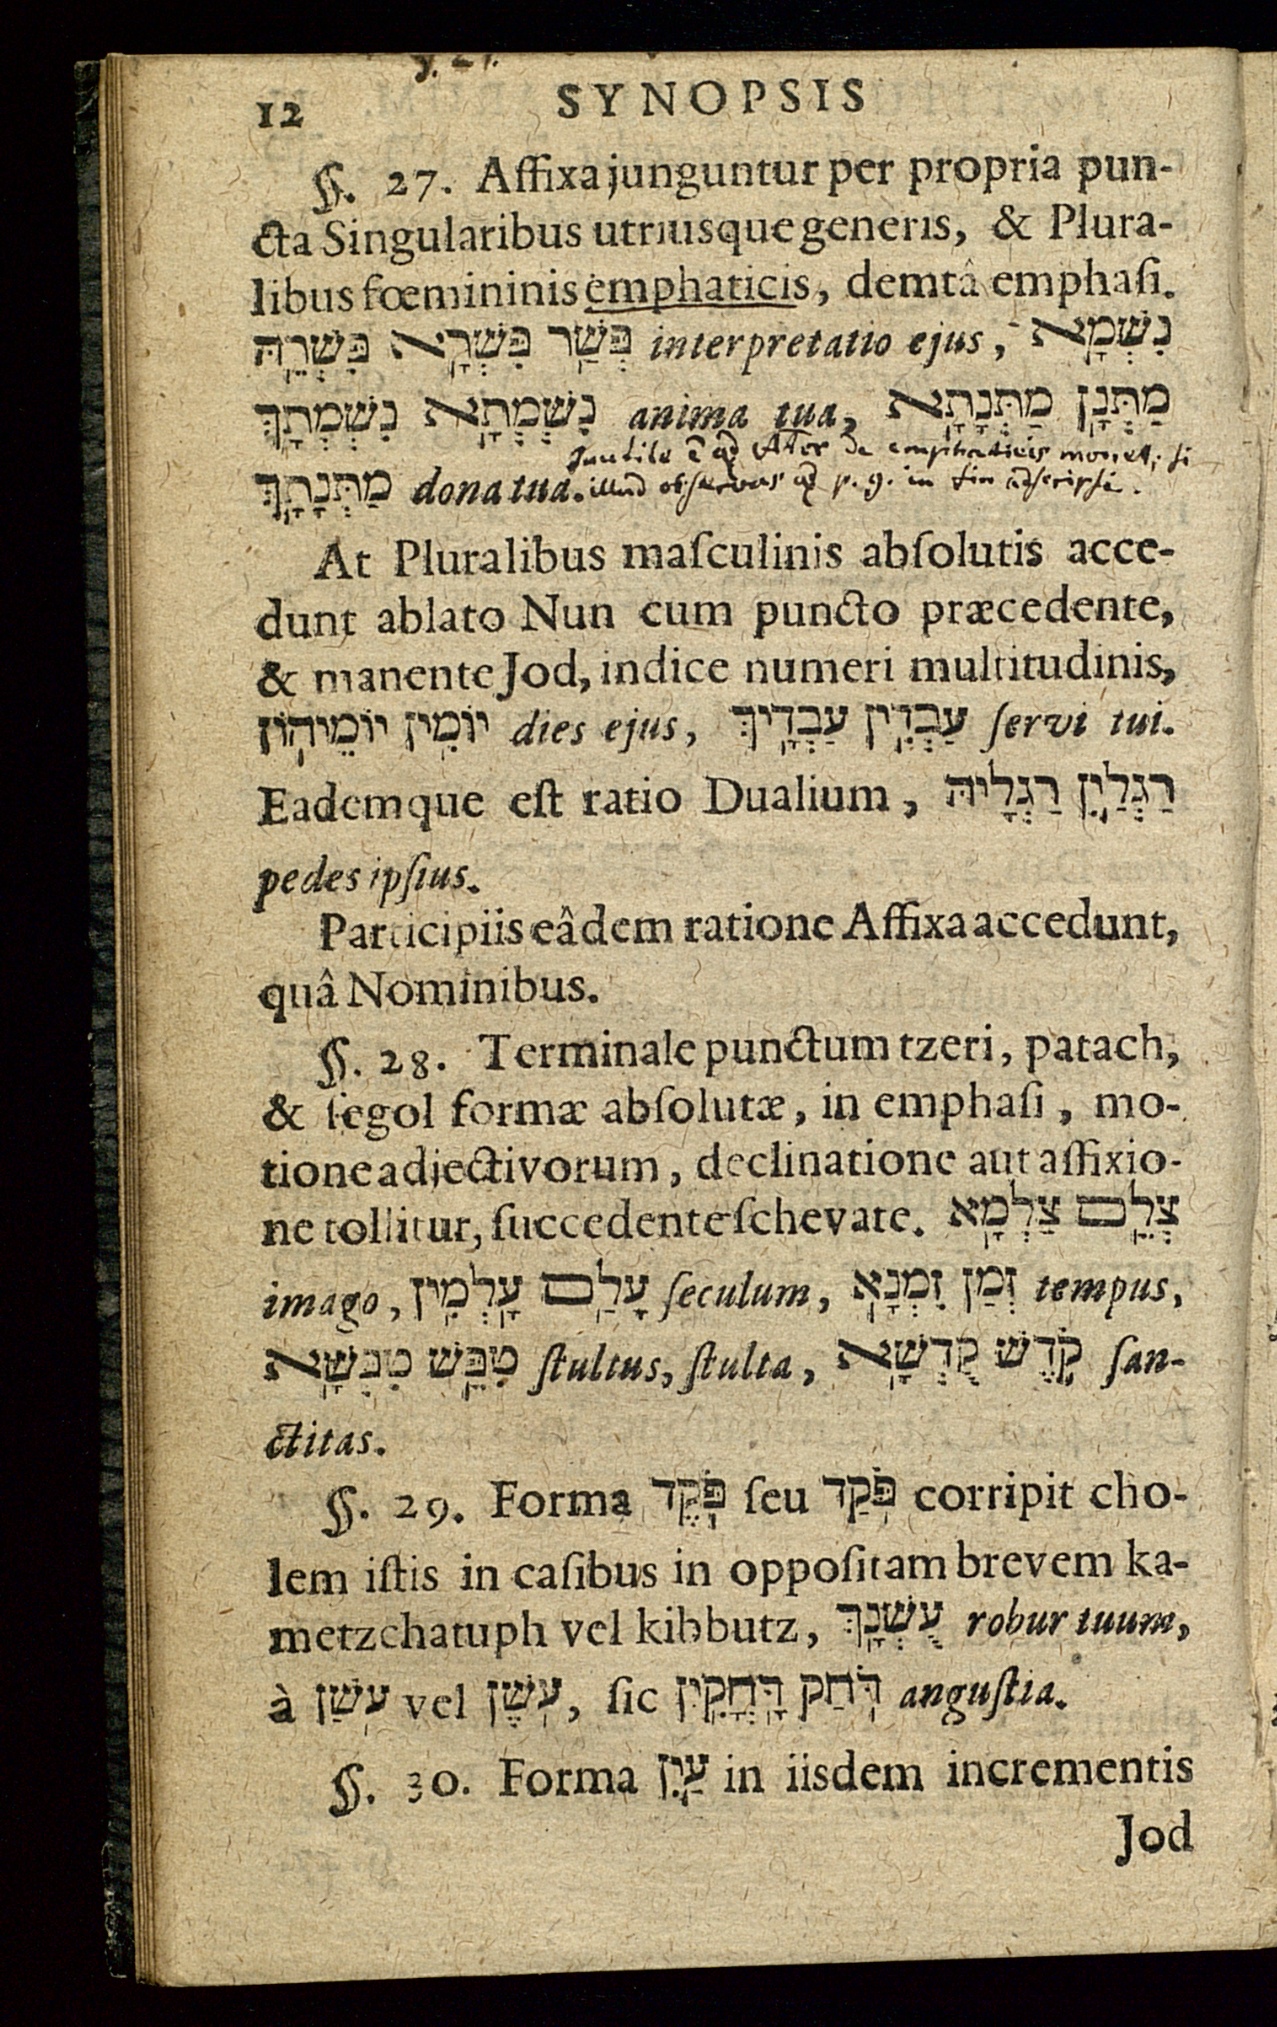 12 SYNOPSIS
§. 27. Affixa junguntur per propria pun-
cta Singularibus utriusque generis, & Plura-
libus fœmininis emphaticis, demtâ emphaſi.
בְּשַׁר בִּשְׁרָא בִּשְׁרֵהּ interpretatio ejus, נִשְׁמָא
נִשְׁמְתָא נִשְׁמְתָךְ anima tua, מַתְּנָן מַתְּנָתָא
Inutile ē qd Ater de emphaticis monet, si
מַתְּנָתָךְ dona tua. illud observas qd p. 9. in fin adscripsi.
At Pluralibus maſculinis abſolutis acce-
dunt ablato Nun cum puncto præcedente,
& manente Jod, indice numeri multitudinis,
יוֹמִין יוֹמֵיהוֹן dies ejus, עַבְדִין עַבְדָיךְ ſervi tui.
Eademque eſt ratio Dualium, רַגְלַיִן רַגְלָיהּ
pedes ipſius.
Participiis eâdem ratione Affixa accedunt,
quâ Nominibus.
§. 28. Terminale punctum tzeri, patach,
& ſegol formæ abſolutæ, in emphaſi, mo-
tione adjectivorum, declinatione aut affixio-
ne tollitur, ſuccedente ſchevate. צְלֵם צַלְמָא
imago, עָלַם עָלְמִין ſeculum, זְמַן זִמְנָא tempus,
טִפֵּשׁ טִפְּשָׁא ſtultus, ſtulta, קֹדֶשׁ קֻדְשָׁא ſan-
ctitas.
§. 29. Forma פֹּקֶד ſeu פֹּקַד corripit cho-
lem iſtis in caſibus in oppoſitam brevem ka-
metzchatuph vel kibbutz, עֻשְׁנָךְ robur tuum,
à עֹשַׁן vel עֹשֶׁן, ſic דֹּחַק דָּחֳקִין anguſtia.
§. 30. Forma עַיִן in iisdem incrementis
Jod